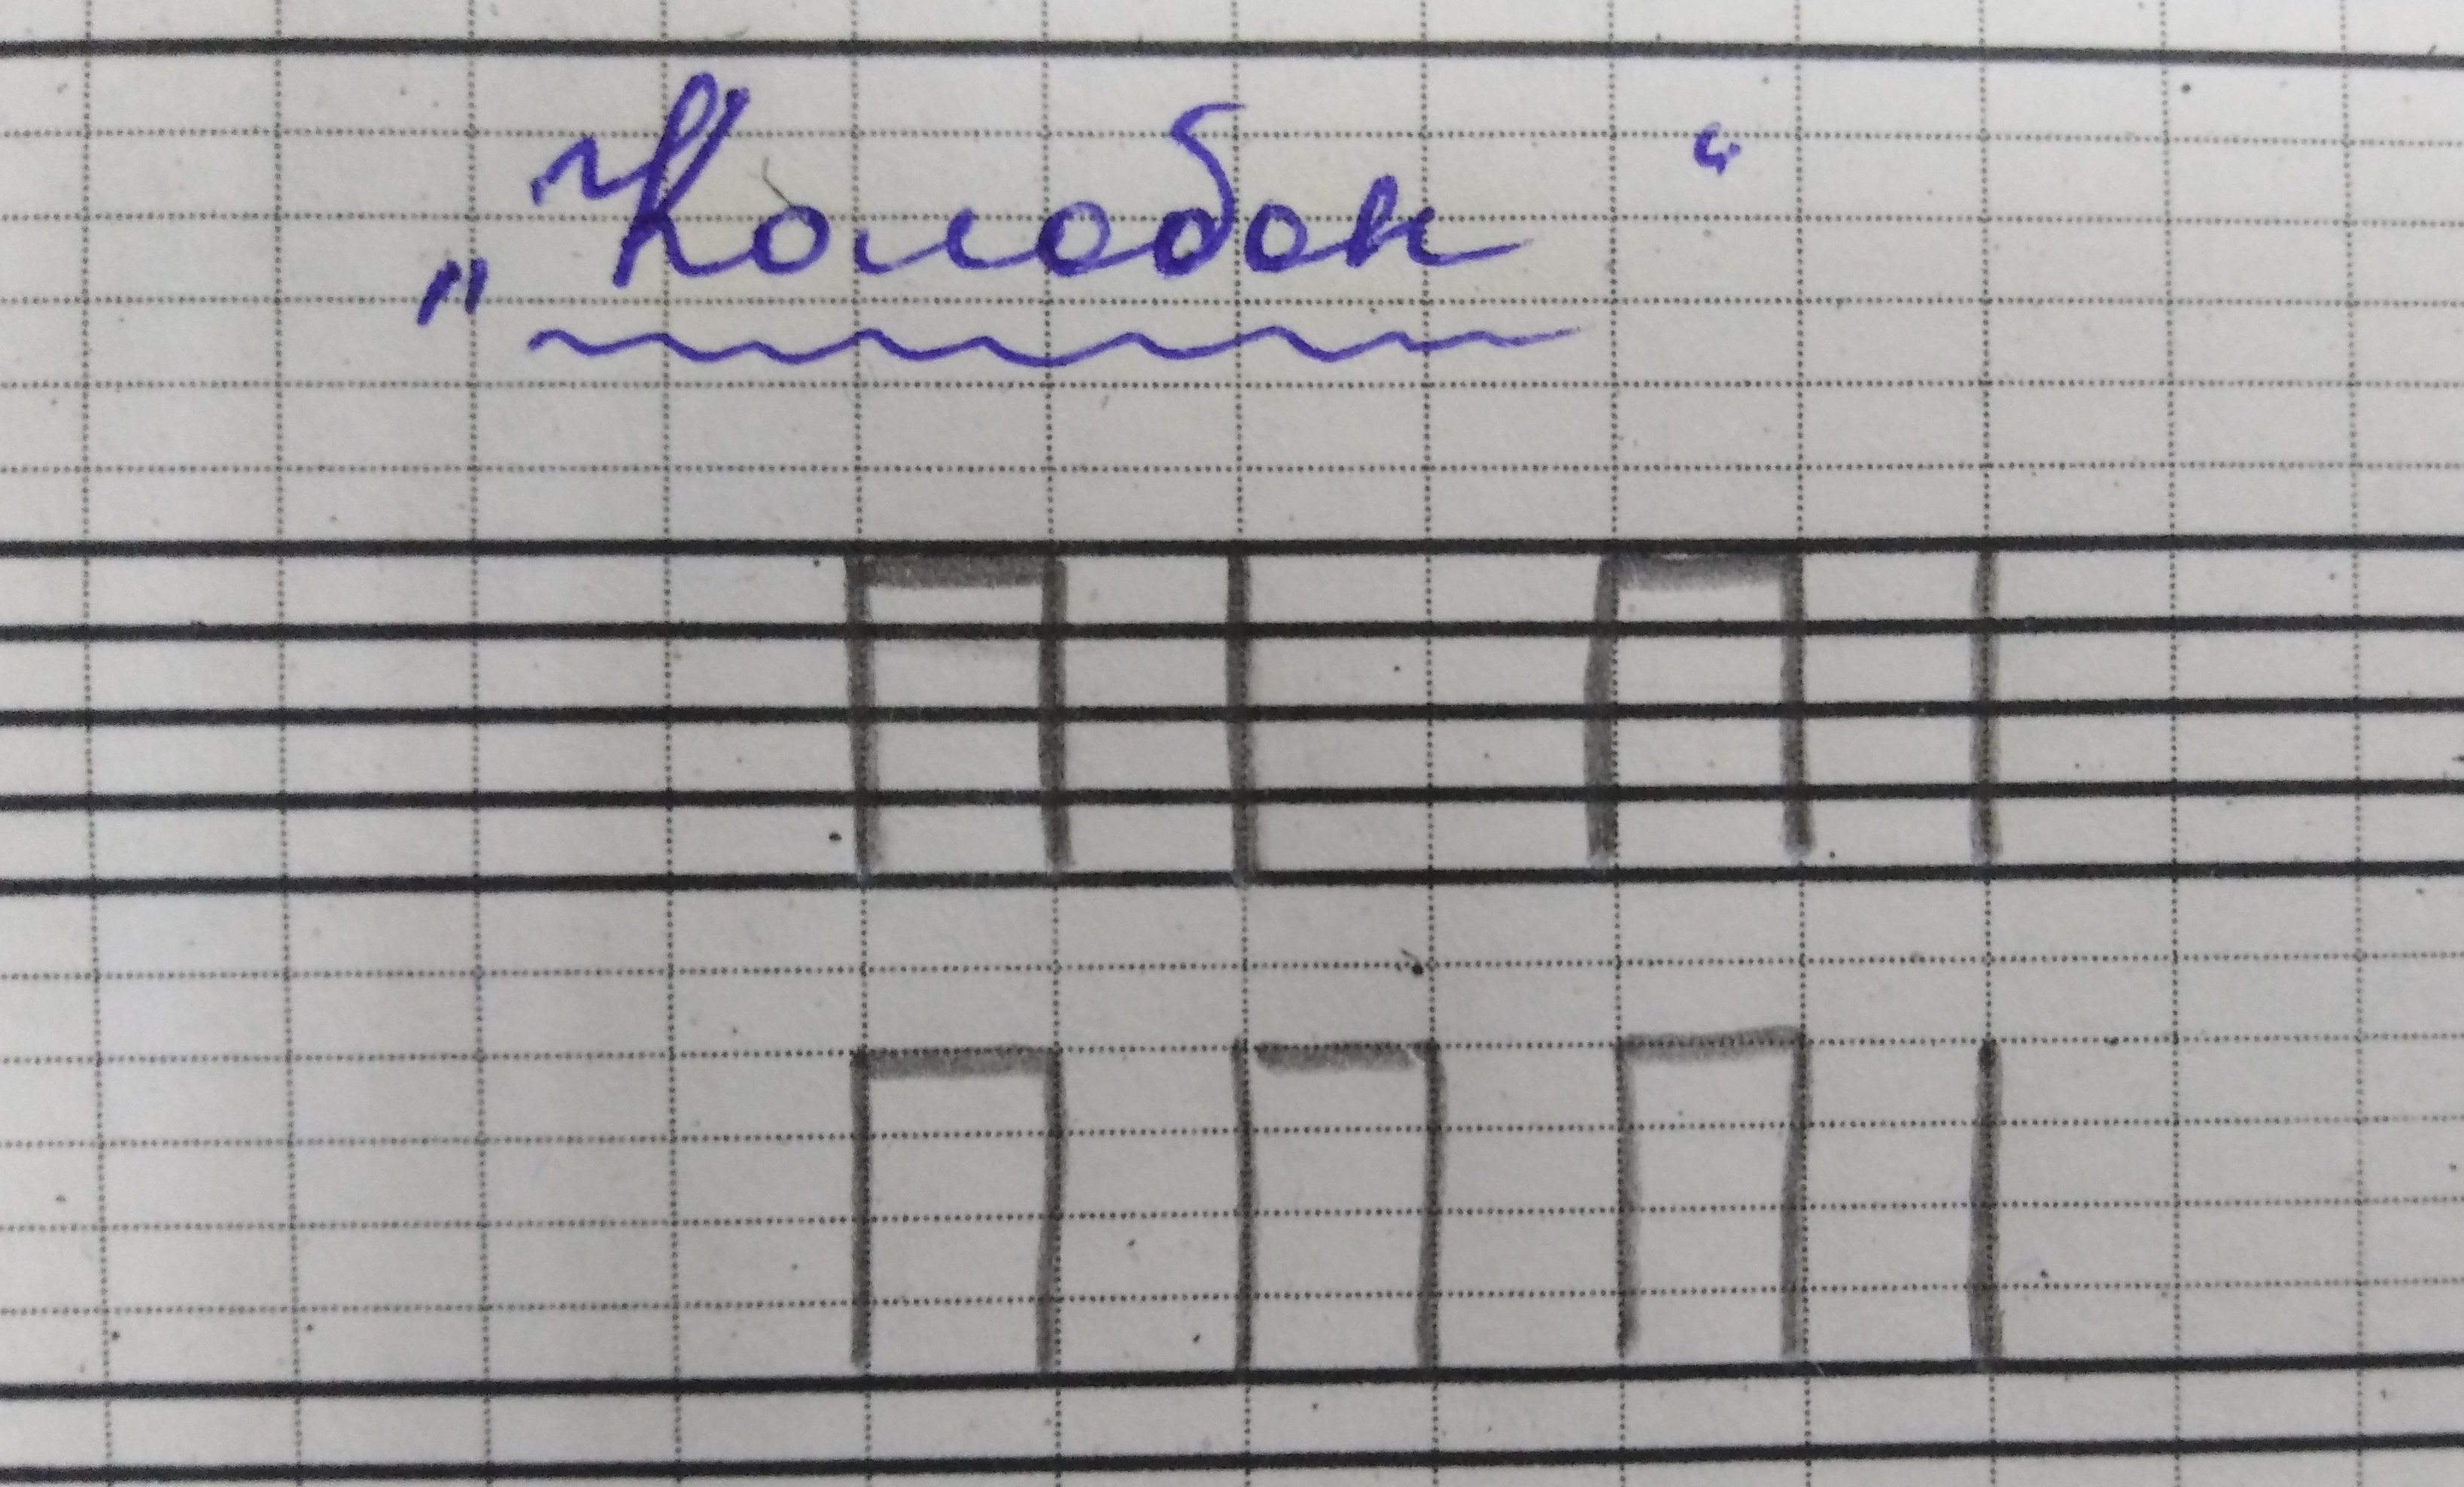 „Колобок“